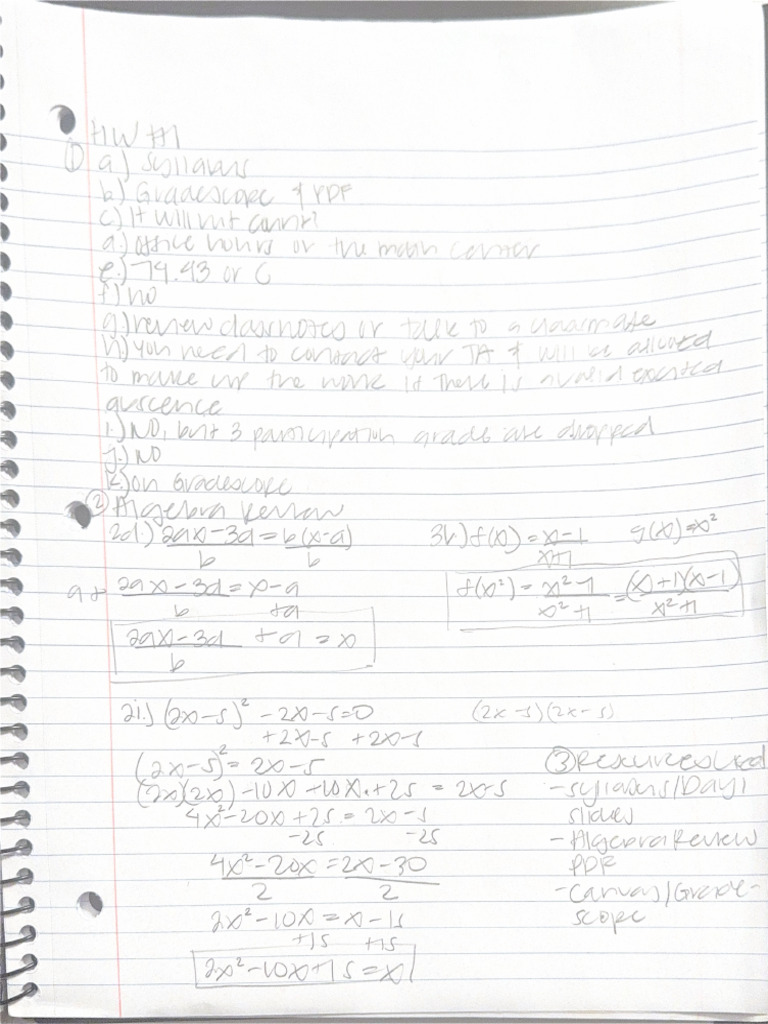 HW #1
① a.) Syllabus
b.) Gradescope & PDF
c.) It will not count?
d.) office hours or the math center
e.) 74.43 or C
f.) no
g.) review class notes or talk to a classmate
h.) you need to contact your TA & will be allowed
to make up the work if there is a valid excused
i.) NO, but 3 participation grade are dropped
j.) NO
k.) on Gradescope
② Algebra Review
2d.) 2ax-3d = b(x-a)
b b
2ax-3d = x-a
b +a
2ax-3d + a = x
b
3b.) f(x) = x-1 g(x) = x²
x+1
f(x²) = x²-1 = (x+1)(x-1)
x²+1 x²+1
2i.) (2x-5)² - 2x-5=0 (2x-5)(2x-5)
+2x-5 +2x-5
(2x-5)² = 2x-5
(2x)(2x) -10x -10x +25 = 2x-5
4x²-20x+25 = 2x-5
-25 -25
4x²-20x = 2x-30
2 2
2x²-10x = x-15
+15 +15
2x²-10x+15 = x
③ Resources Used
- Syllabus/Day 1
slides
- Algebra Review
PDF
- Canvas/Grade-
scope